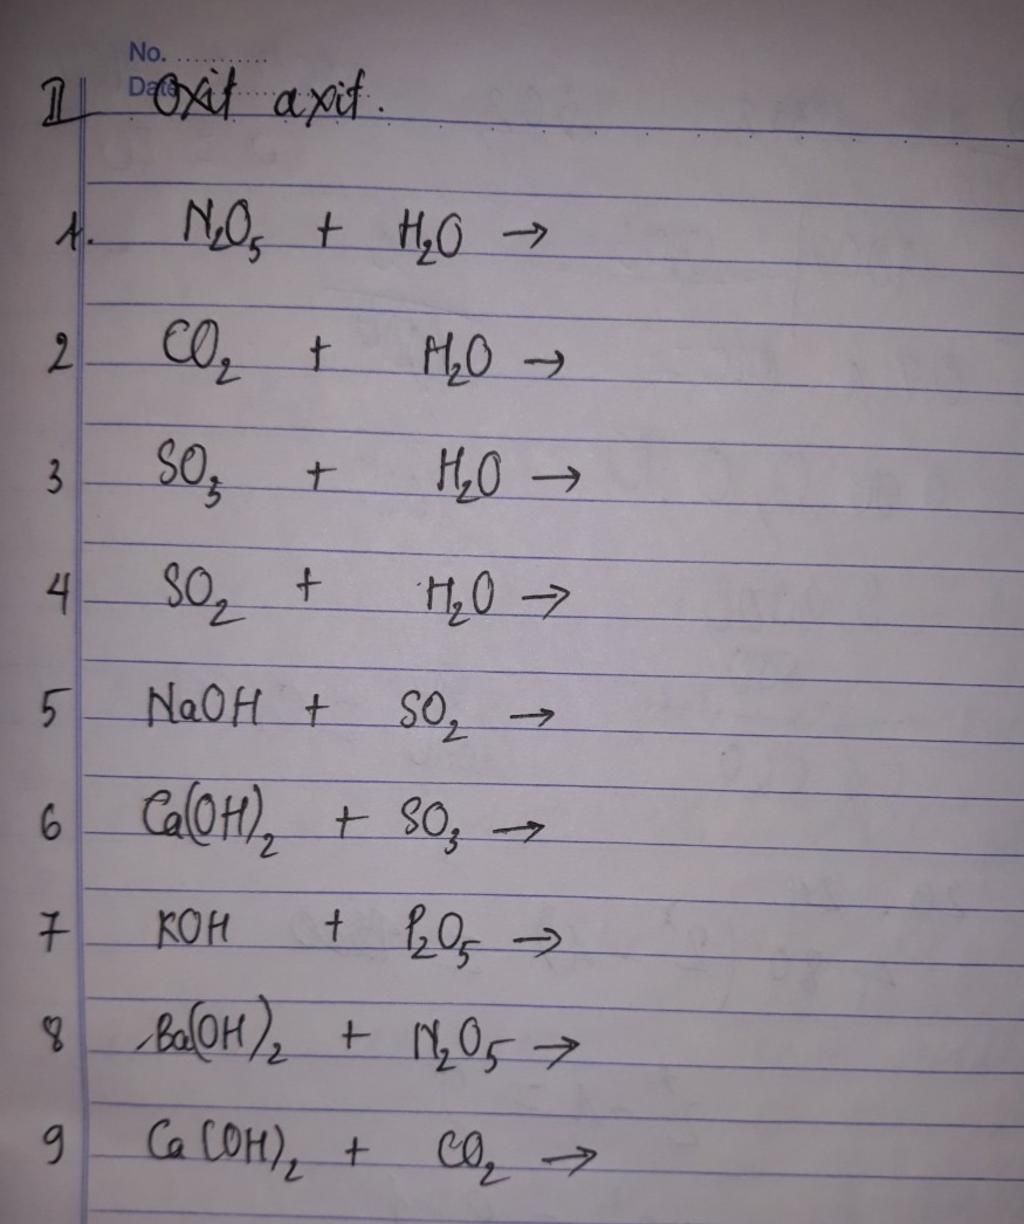 No. ...........
Date ...........
II Oxit axit.
1. N₂O₅ + H₂O →
2 CO₂ + H₂O →
3 SO₃ + H₂O →
4 SO₂ + H₂O →
5 NaOH + SO₂ →
6 Ca(OH)₂ + SO₃ →
7 KOH + P₂O₅ →
8 Ba(OH)₂ + N₂O₅ →
9 Ca(OH)₂ + CO₂ →